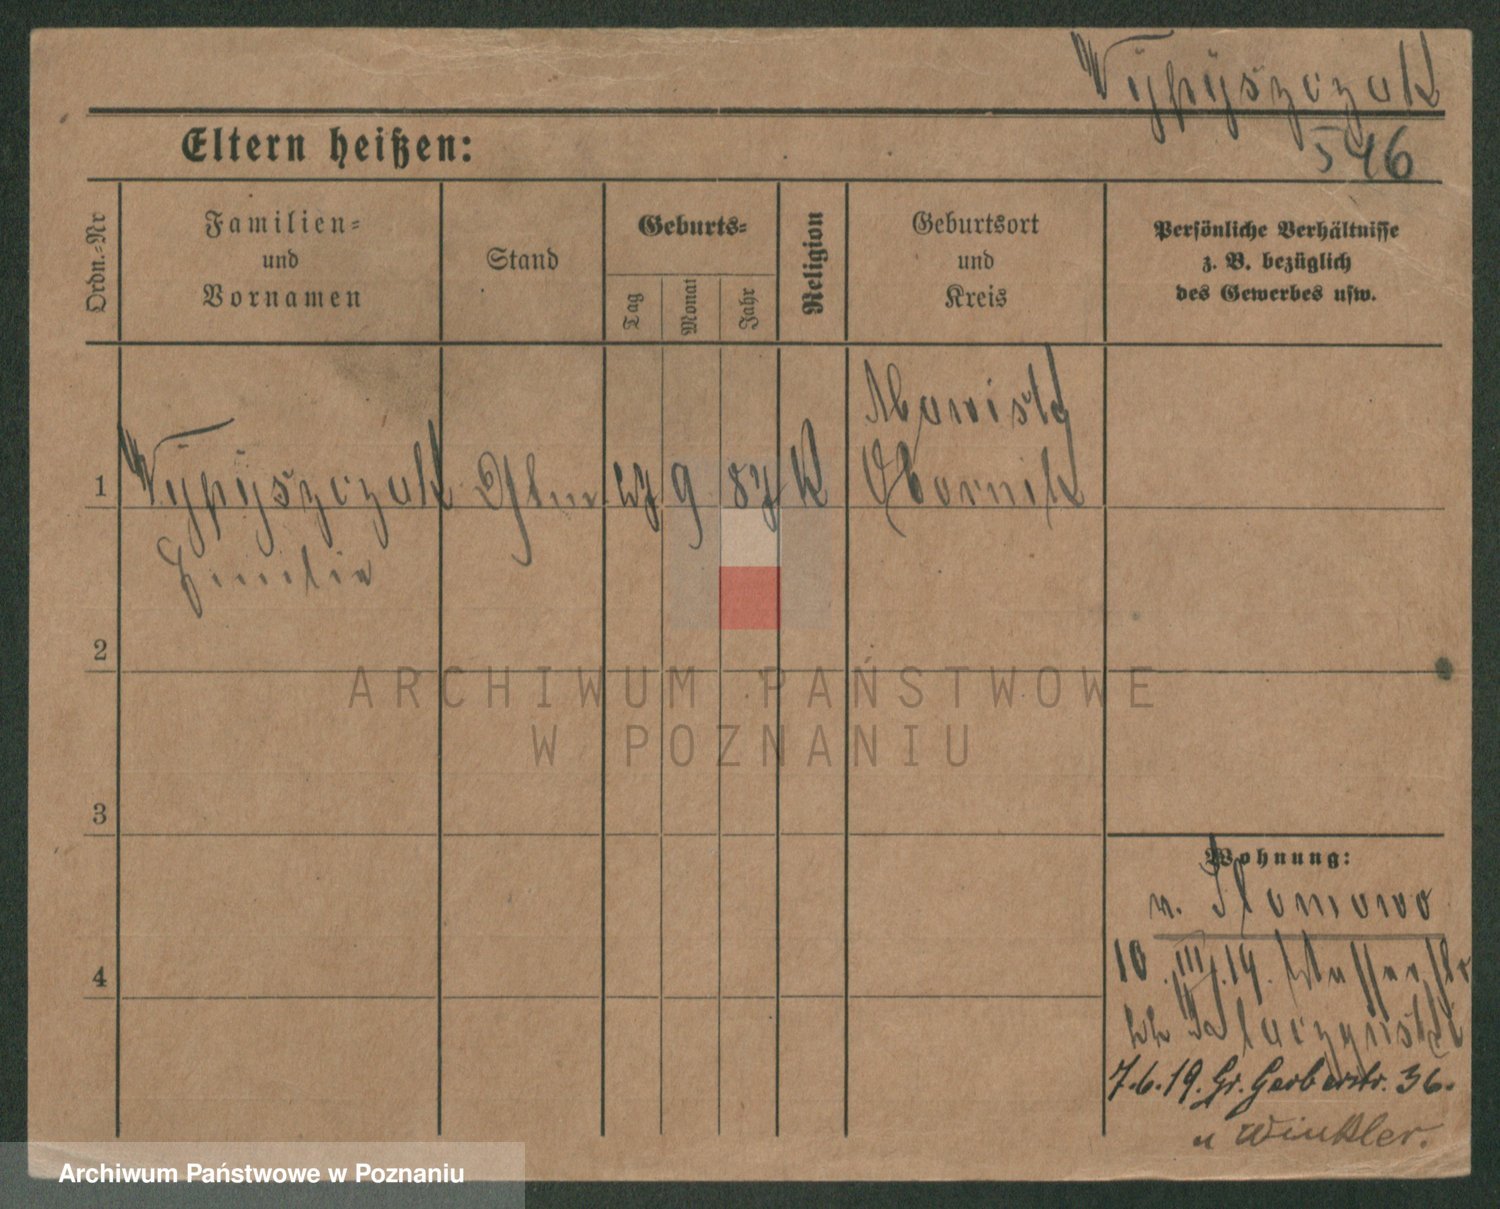 Wÿpÿszczak
546
Eltern heißen:
Ordn.-Nr
Familien- und Vornamen
Stand
Geburts-
Tag
Monat
Jahr
Religion
Geburtsort und Kreis
Persönliche Verhältnisse
z. B. bezüglich
des Gewerbes usw.
1
Wÿpÿszczak
Emilie
9
K
Obornik
2
3
4
Wohnung:
v. Slomowo
10.III.19.
7.6.19. Gr. Gerberstr. 36.
Winkler.
ARCHIWUM PAŃSTWOWE
W POZNANIU
Archiwum Państwowe w Poznaniu